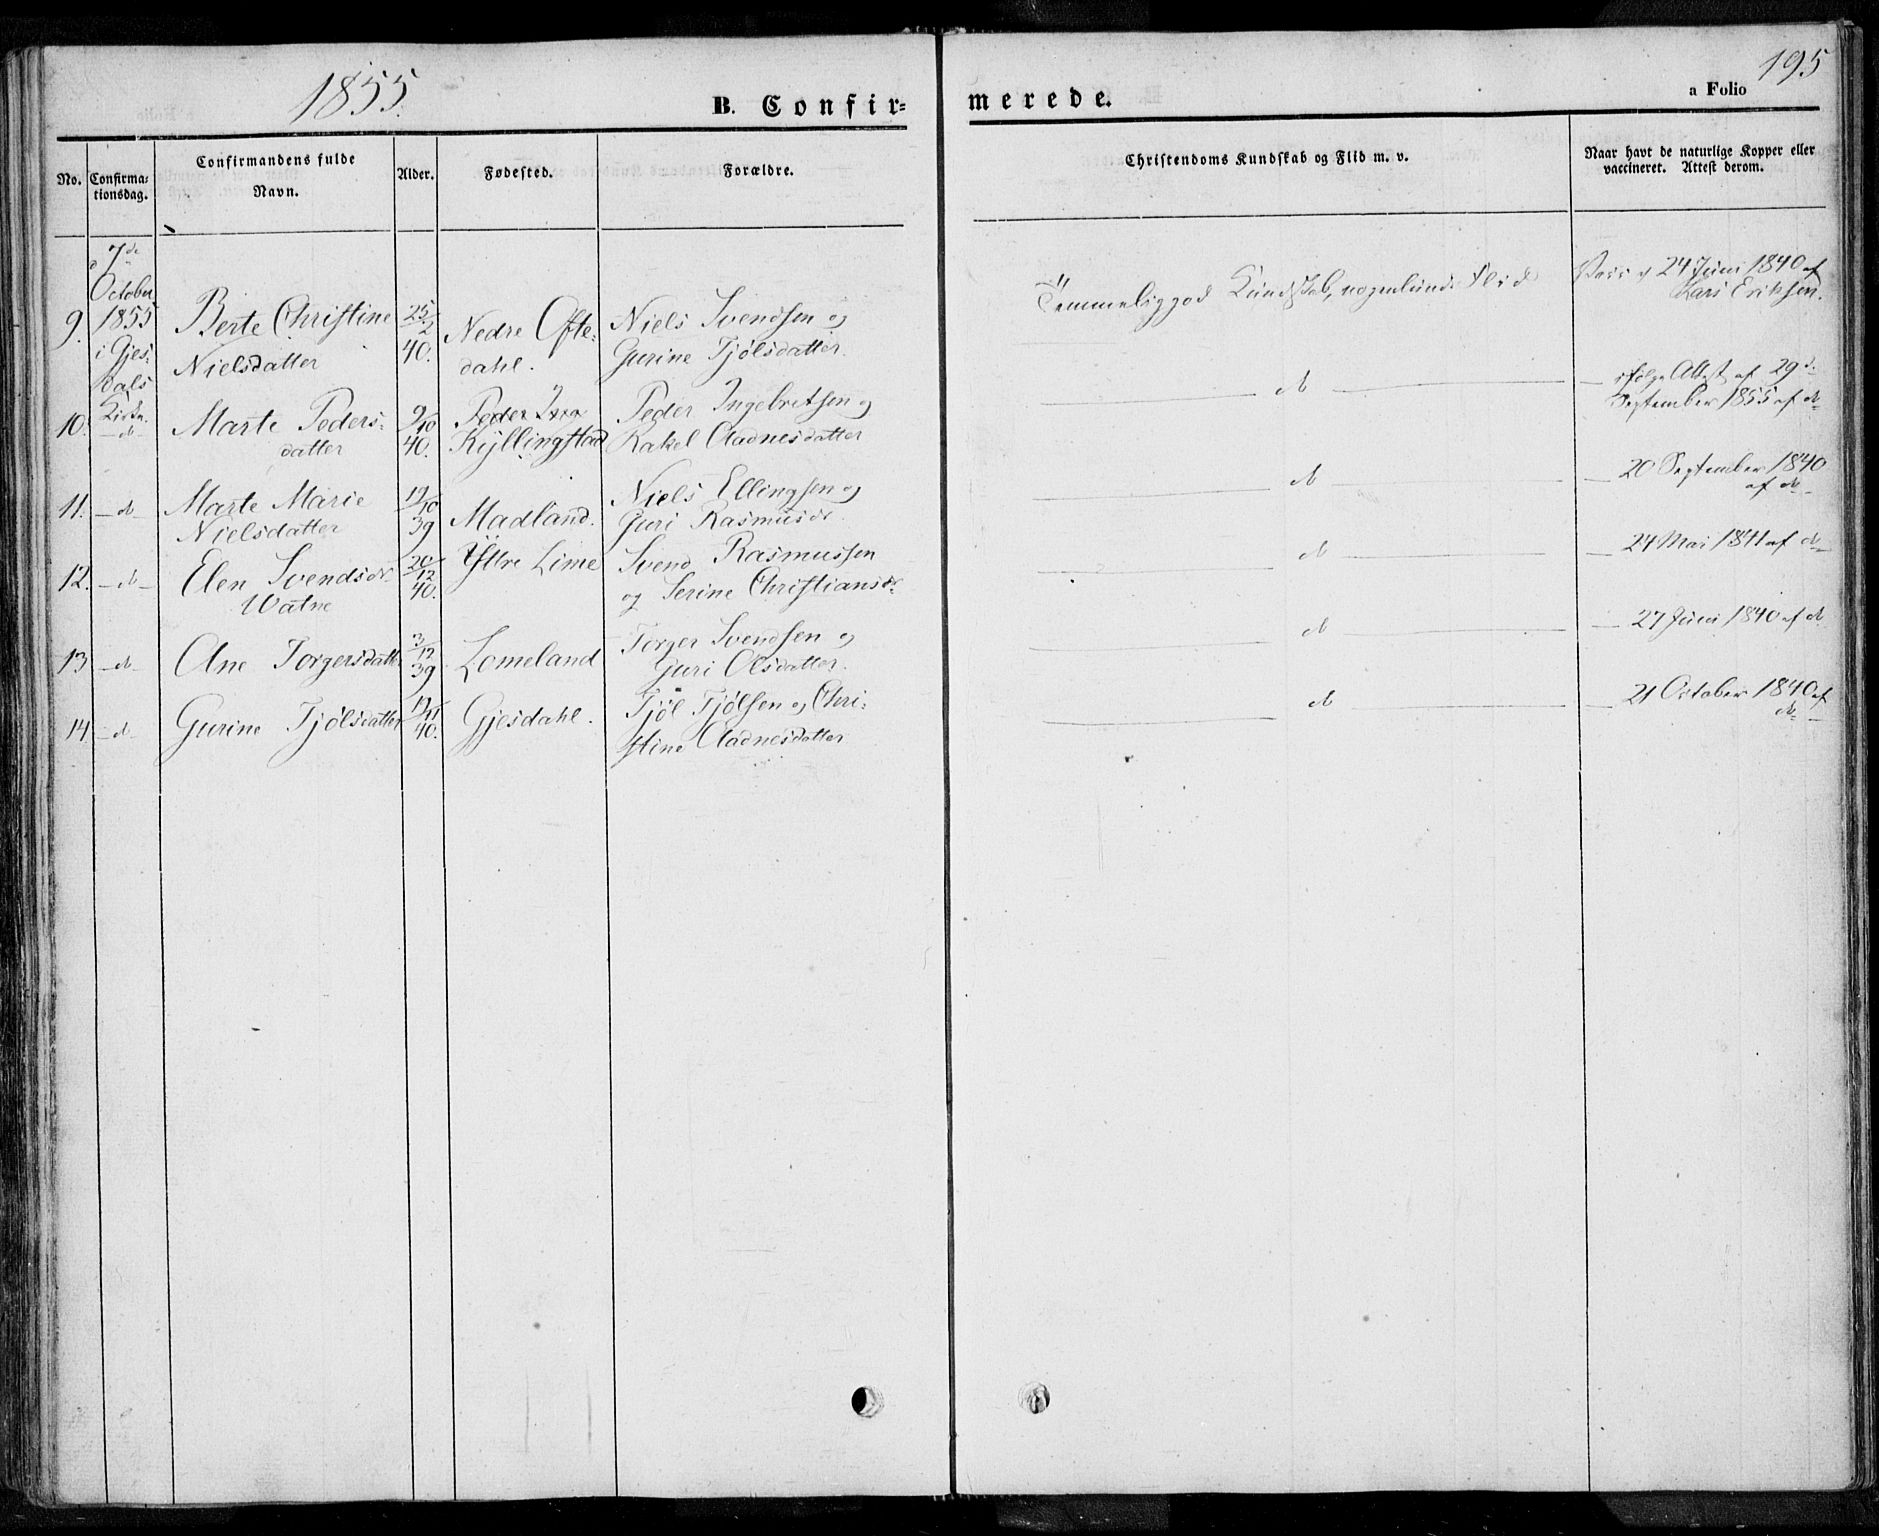 1855.
B. Confir=
merede.
195
a Folio
No.
Confirma=
tionsdag.
Confirmandens fulde
Navn.
Alder.
Fødested.
Forældre.
Christendoms Kundskab og Flid m. v.
Naar havt de naturlige Kopper eller
vaccineret. Attest derom.
9.
7de
October
1855
i Gjes=
dals
Kirke
Berte Christine
Nielsdatter
25/2
40.
Nedre Ofte=
dahl.
Niels Svendsen og
Gurine Tjølsdatter.
Temmelig god Kundskab, nogenlunde Flid
24 Juni 1840 af
Lars Eriksen.
10.
-d-
Marte Peders=
datter
9/10
40.
Peder
Kyllingstad
Peder Ingebretsen og
Rakel Aadnesdatter
do
ifølge Attest af 29 d.
September 1855 af do
11.
-d
Marte Marie
Nielsdatter
19/10
39
Madland.
Niels Ellingsen og
Guri Rasmusdr
do
20 September 1840
af do
12.
-d-
Elen Svendsdr.
Watne
20/12
40.
Ystre Lime
Svend Rasmussen
og Serine Christiansdr.
do
24 Mai 1841 af do
13
-d
Ane Torgersdatter
3/12
39
Lomeland
Torger Svendsen og
Guri Olsdatter.
do
27 Juni 1840 af do
14.
-d
Gurine Tjølsdatter
19/11
40.
Gjesdahl.
Tjøl Tjølsen og Chri=
stine Aadnesdatter
do
21 October 1840 af
do